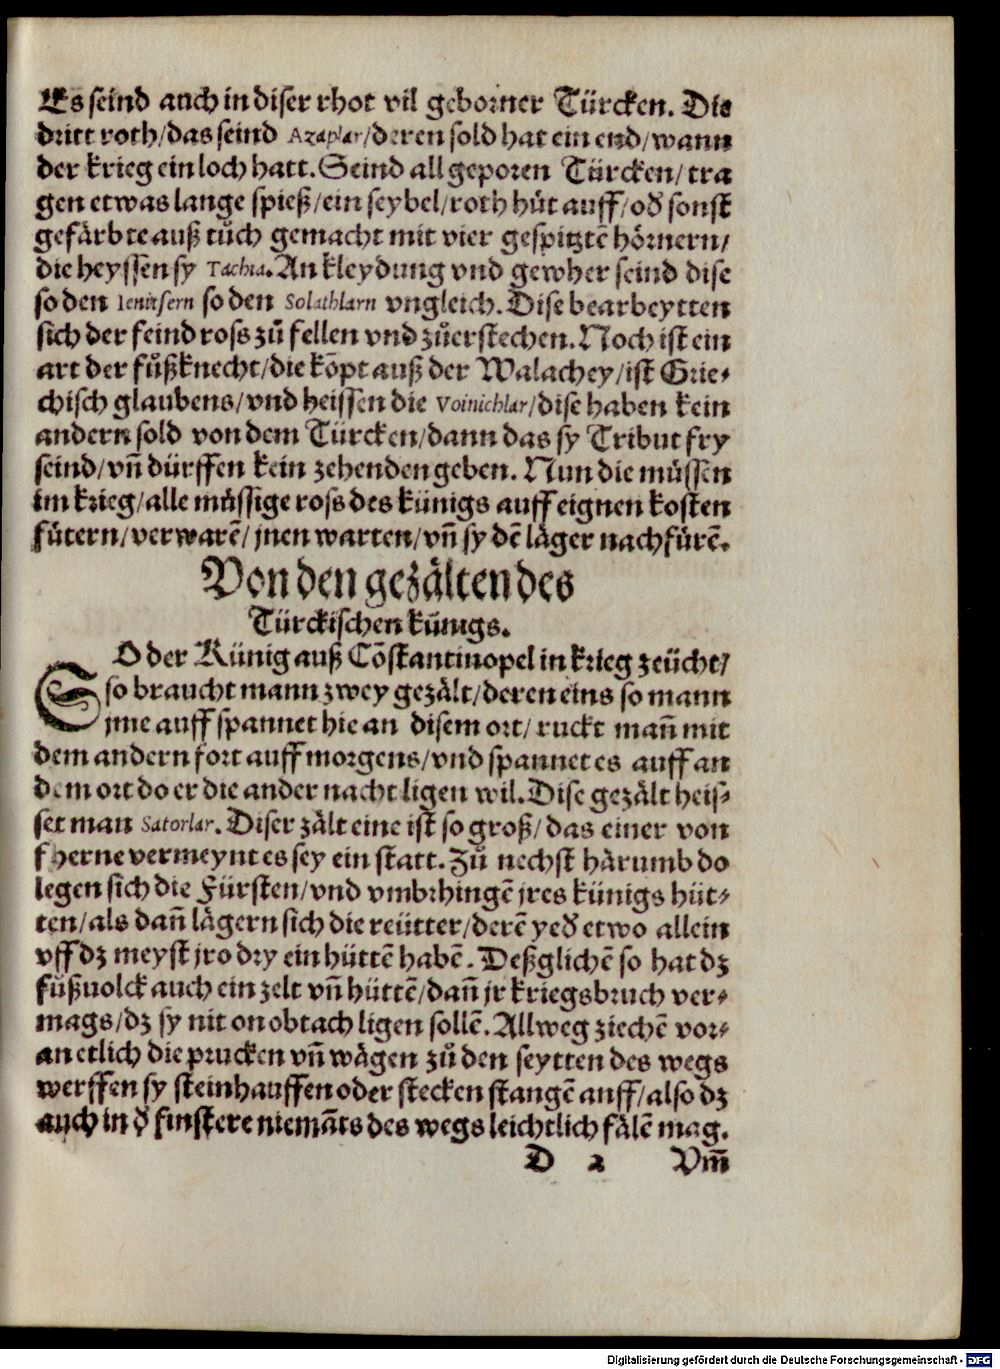 Es seind auch in diser rhot vil geborner Türcken. Die
dritt roth/das seind Azaplar/deren sold hat ein end/wann
der krieg ein loch hatt. Seind all geporen Türcken/tra
gen etwas lange spieß/ein seybel/roth hüt auff/oð sonst
gefärbte auß tůch gemacht mit vier gespitztē hörnern/
die heyssen sy Tachia. An kleydung vnd gewher seind dise
so den Ienitsern so den Solathlarn vngleich. Dise bearbeytten
sich der feind ross zů fellen vnd zůerstechen. Noch ist ein
art der fůßknecht/die kōpt auß der Walachey/ist Grie-
chisch glaubens/vnd heissen die Voinichlar/dise haben kein
andern sold von dem Türcken/dann das sy Tribut fry
seind/vñ dürffen kein zehenden geben. Nun die müssen
im krieg/alle müssige ross des künigs auff eignen kosten
fütern/verwarē/jnen warten/vñ sy dē läger nachfürē.
Von den gezälten des
Türckischen künigs.
SO der Künig auß Cōstantinopel in krieg zeücht/
so braucht mann zwey gezält/deren eins so mann
jme auff spannet hie an disem ort/ruckt mañ mit
dem andern fort auff morgens/vnd spannet es auff an
dem ort do er die ander nacht ligen wil. Dise gezält heis-
set man Satorlar. Diser zält eine ist so groß/das einer von
fherne vermeynt es sey ein statt. Zů nechst härumb do
legen sich die Fürsten/vnd vmbrhingē jres künigs hüt-
ten/als dañ lägern sich die reütter/derē yeð etwo allein
vff dz meyst jro dry ein hüttē habē. Deßglichē so hat dz
fůßuolck auch ein zelt vñ hüttē/dañ jr kriegsbruch ver-
mags/dz sy nit on obtach ligen sollē. Allweg ziechē vor-
an etlich die prucken vñ wägen zů den seytten des wegs
werffen sy steinhauffen oder stecken stangē auff/also dz
auch in ð finstere niemāts des wegs leichtlich fälē mag.
D 2 Vm̄
Digitalisierung gefördert durch die Deutsche Forschungsgemeinschaft - DFG